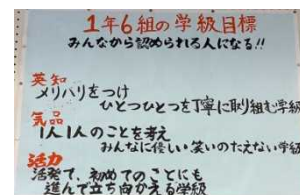 1年6組の学級目標
みんなから認められる人になる!!
英知
メリハリをつけ
ひとつひとつを丁寧に取り組む学級
気品
1人1人のことを考え
みんなに優しい笑いのたえない学級
活力
活発で、初めてのことにも
進んで立ち向かえる学級